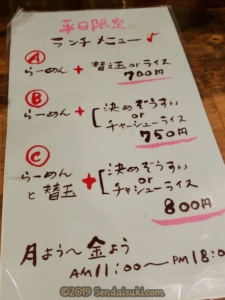 平日限定
ランチメニュー♪
Ⓐ
らーめん + 替え玉orライス
700円
Ⓑ
らーめん + [決めぞうすい
or
チャーシューライス
750円
Ⓒ
らーめん
と替玉 + [決めぞうすい
or
チャーシューライス
800円
月よう〜金よう
AM11:00〜PM18:0
©2019 Sendaisuki.com